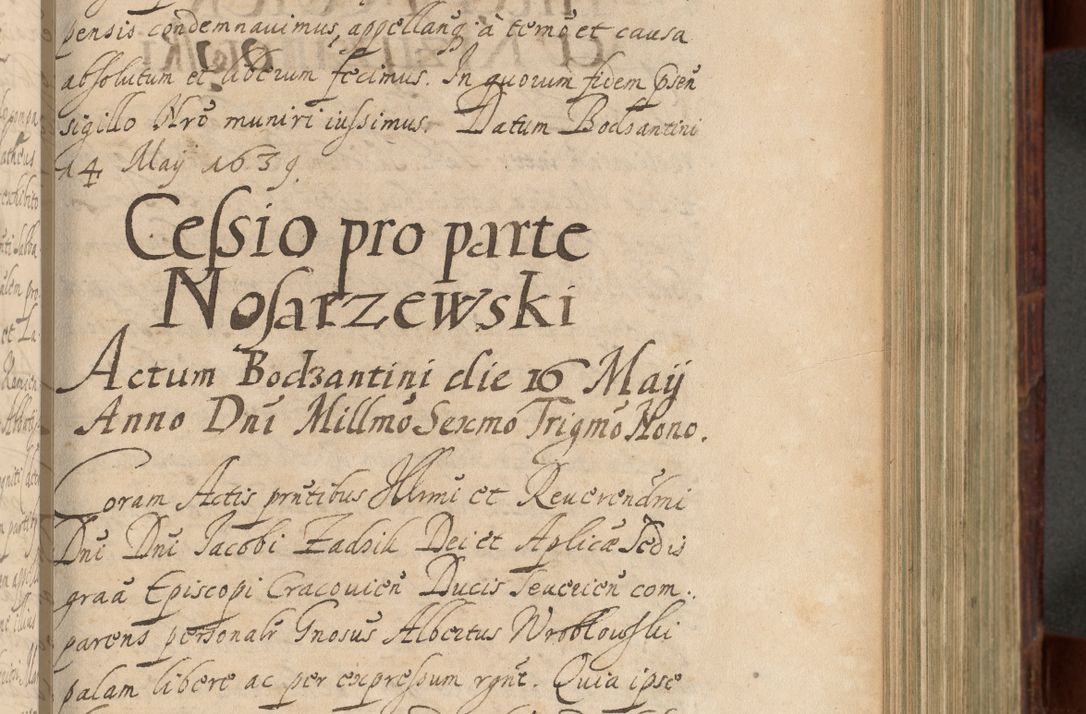 pensis condemnavimus, appellanḡ à termō et causa
absolutum et liberum fecimus. In quorum fidem p̄sen̄
sigillo Nrō muniri iussimus. Datum Bodzantini
14 May 1639.
Cessio pro parte
Nosarzewski
Actum Bodzantini die 16 Maij
Anno Dnī Millmō Sexmo Trigmō Nono.
Coram Actis prn̄tibus Illrmi et Reuerendmi
Dnī Dnī Jacobi Zadzik Dei et Aplicæ Sedis
graā Episcopi Cracouien̄ Ducis Seuerien̄ com.
parens personalr Gnosus Albertus Wroblousski
palam libere ac per expressum rgnt̄. Quia ipse